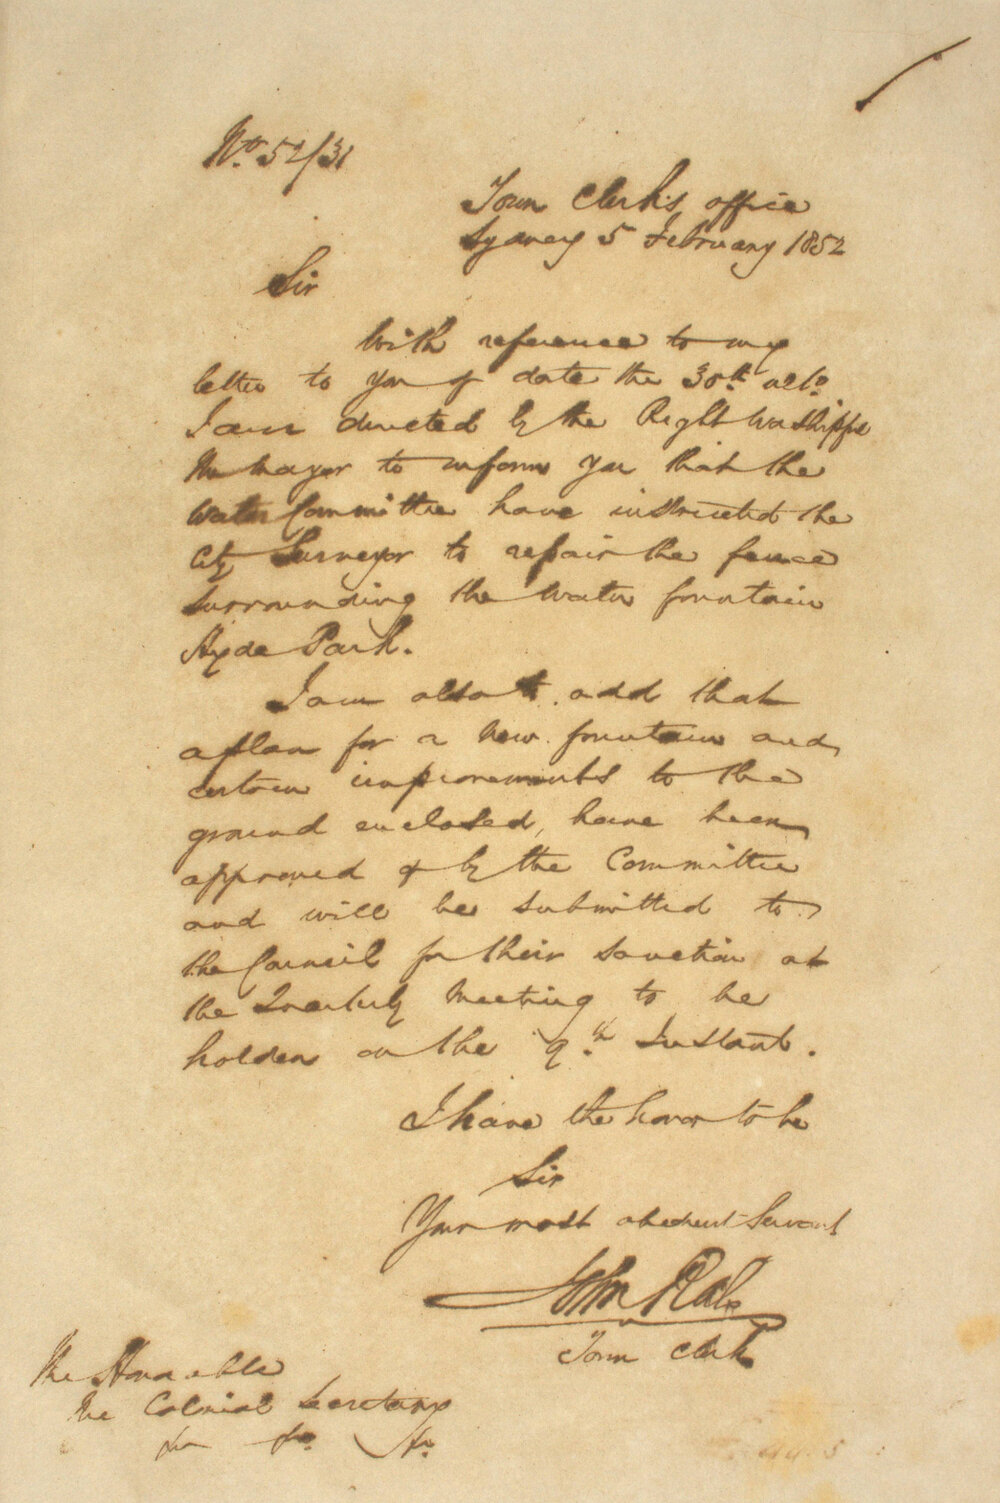 No. 52/31
Town Clerk's office
Sydney 5 February 1852
Sir
With reference to my
letter to you of date the 30th ulto.
I am directed by the Right Worshipful
the Mayor to inform you that the
Water Committee have instructed the
City Surveyor to repair the fence
surrounding the water fountain
Hyde Park.
I am also to add that
a plan for a new fountain and
certain improvements to the
ground enclosed, have been
approved of by the Committee
and will be submitted to
the Council for their sanction at
the Quarterly Meeting to be
holden on the 9th Instant.
I have the honor to be
Sir
Your most obedient Servant
John Rae
Town Clerk
The Honorable
the Colonial Secretary
&c &c &c